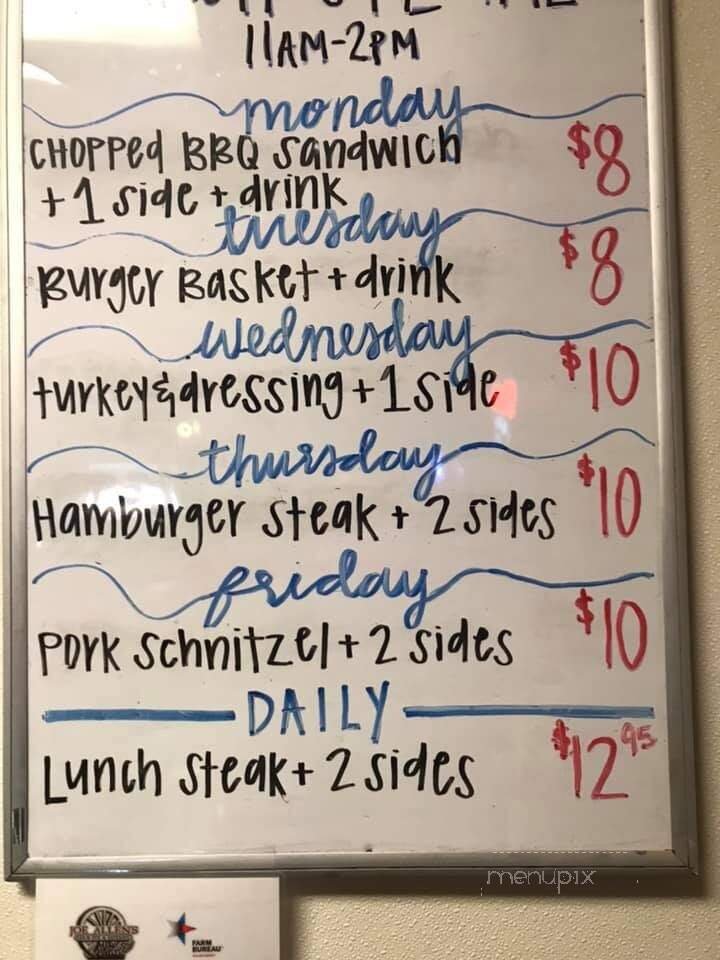 11AM-2PM
monday
CHOPPED BBQ SANDWICH $8
+ 1 side + drink
tuesday
Burger Basket + drink $8
wednesday
turkey & dressing + 1 side $10
thursday
Hamburger steak + 2 sides $10
friday
Pork Schnitzel + 2 sides $10
DAILY
Lunch steak + 2 sides $12 95
menupix
JOE ALLEN'S
FARM
BUREAU